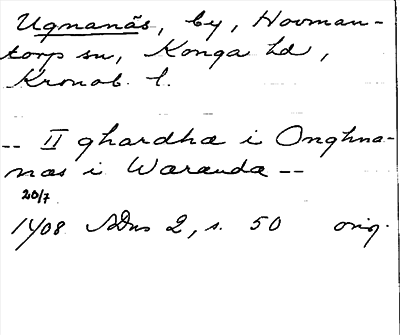 Ugnanäs, by, Hovman-
torp sn, Konga hd,
Kronob. l.
-- II ghardha i Onghna-
nas i Waranda --
20/7
1408 SDns 2, s. 50 orig.